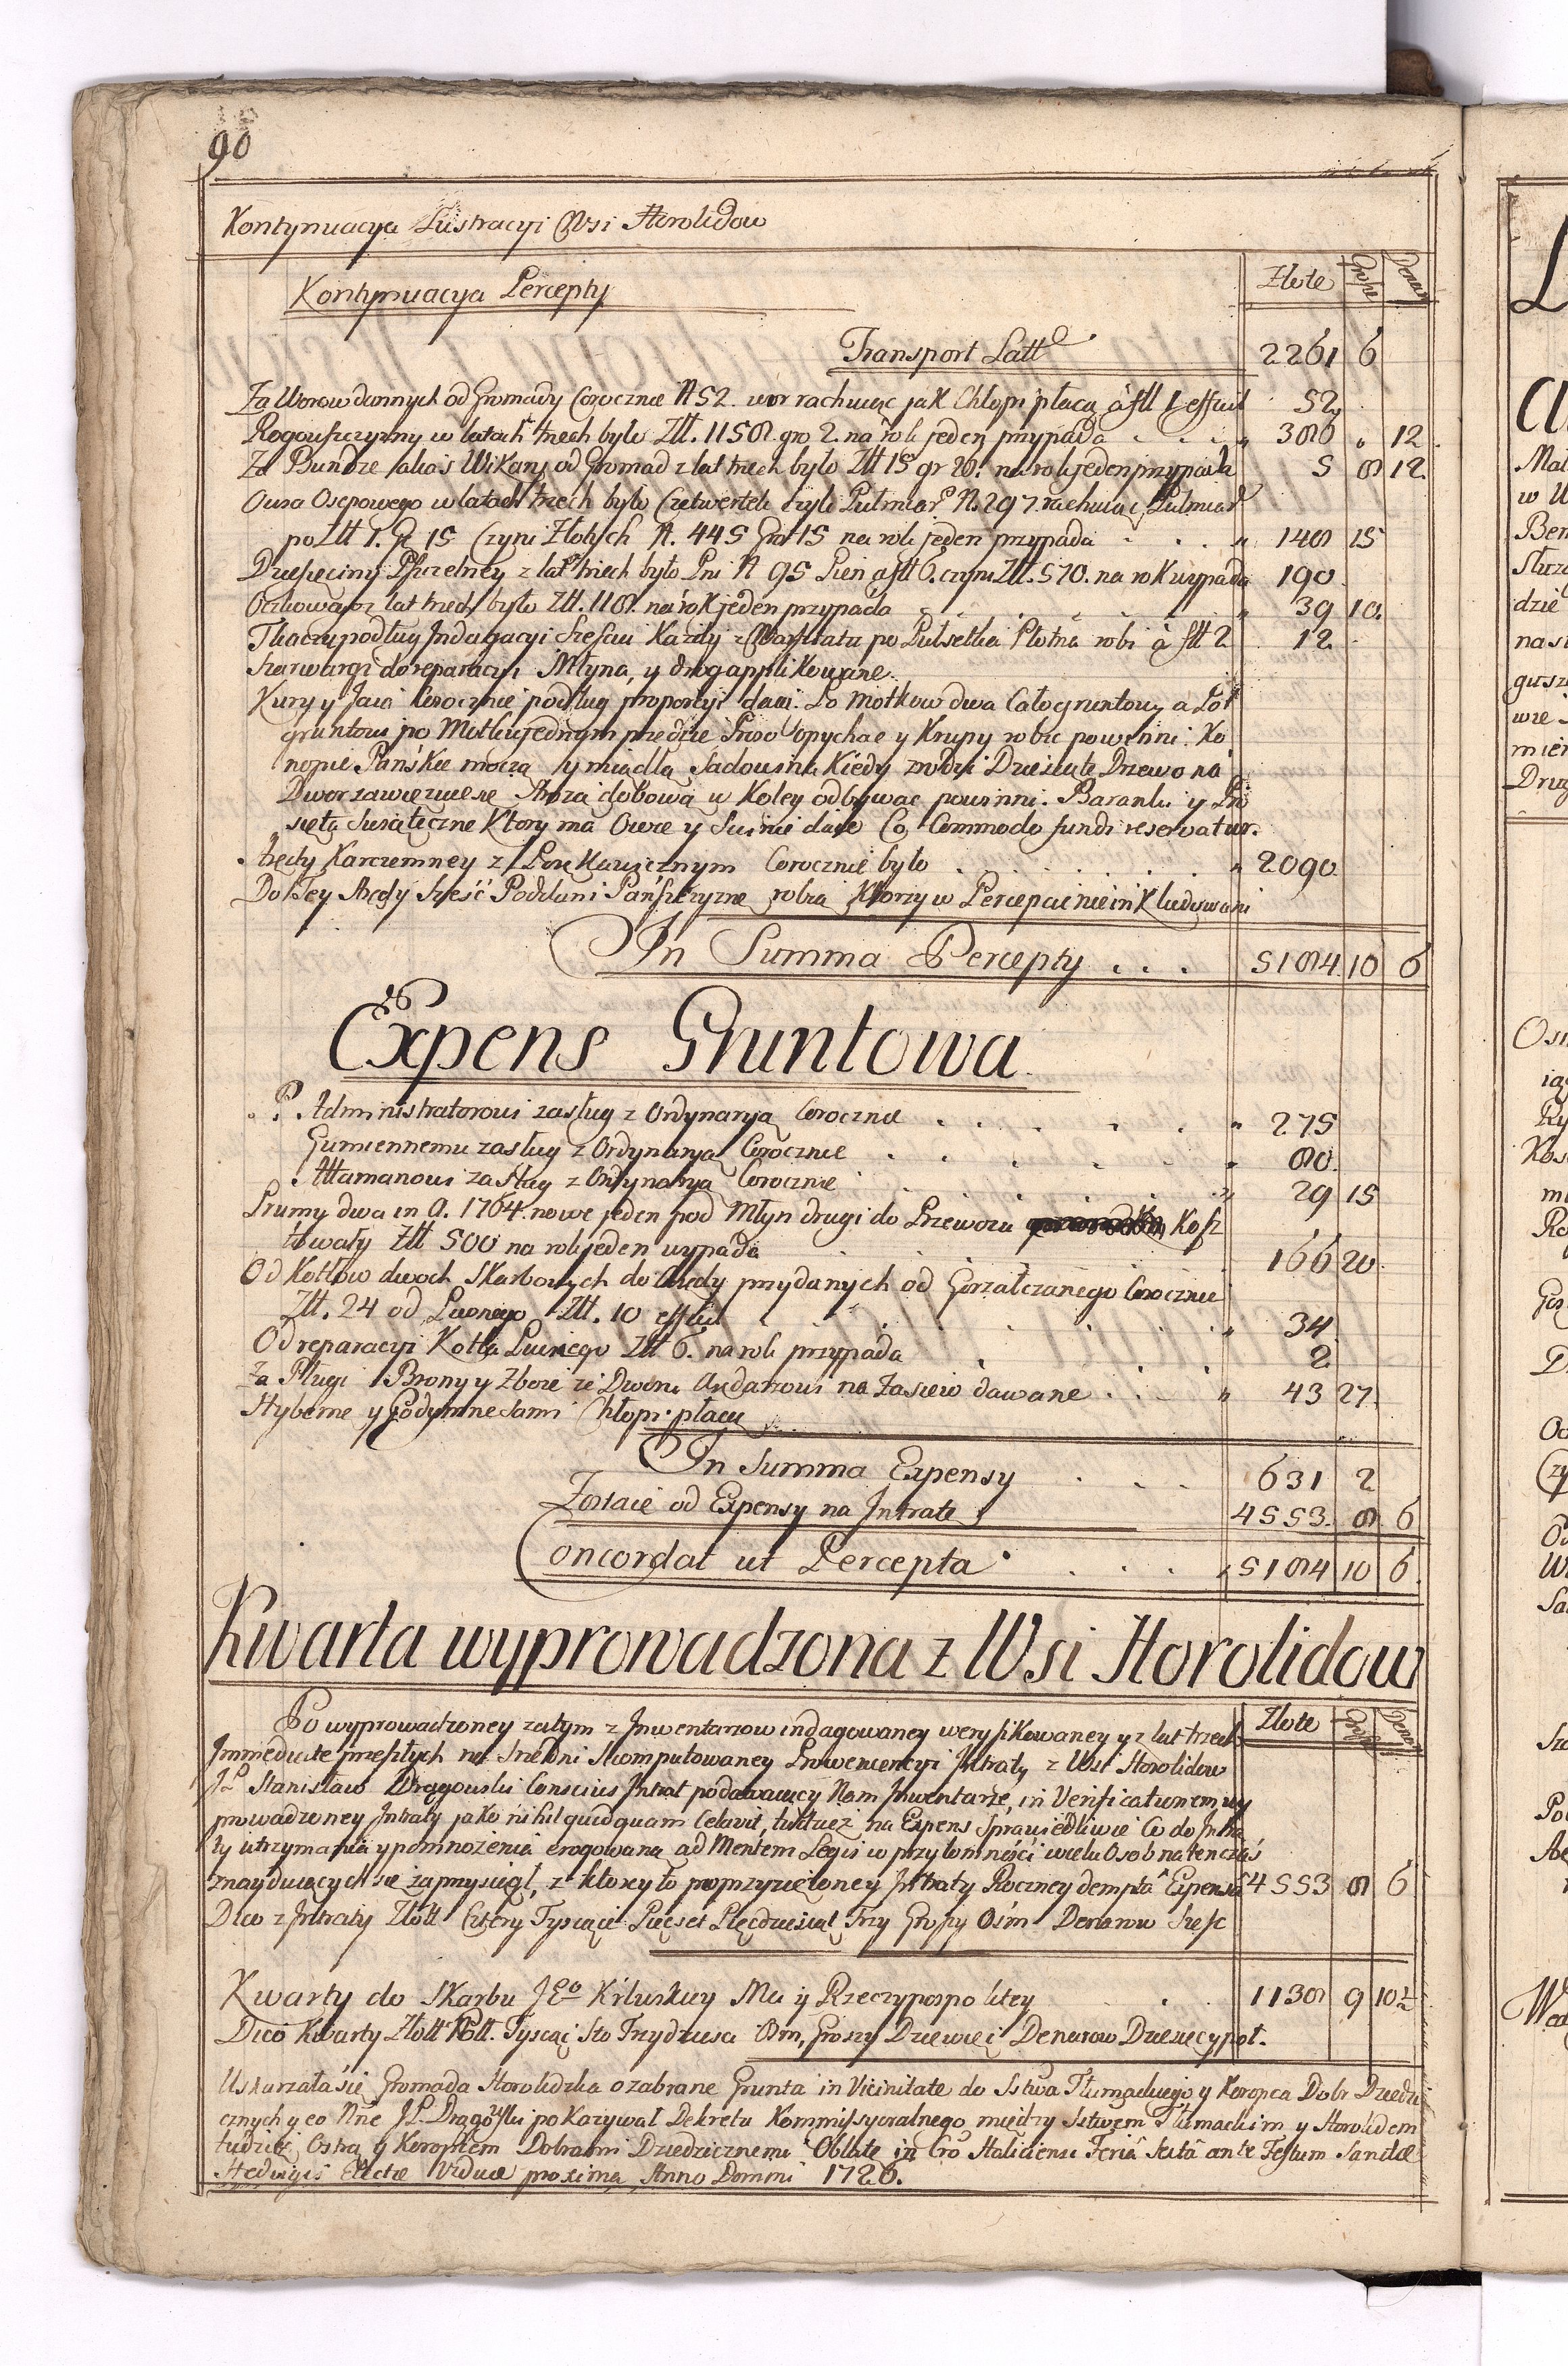 90
Kontynuacya Lustracyi Wsi Horolidow
Kontynuacya Percepty
Złote Grosze Denar
Transport Latt 2261 6
Za Worow dannych od Gromady Corocznie N 52. wor rachuiąc jak Chłopi płacą à fll 1 efficit 52
Rogowszczyzny w latach trzech było Złł. 1158. gro 2. na rok jeden przypada 386 „ 12
Za Bundze alias Wikary od Gromad z lat trzech było Złł 15 gr 26. na rok jeden przypada 5 8 12
Owsa Osepowego w latach trzech było Czetwertek czyli Pułmiar N. 297. rachuiąc Pułmiar
po Złł 1. G 15 Czyni Złotych N. 445 Gro 15 na rok jeden przypada 148 15
Dziesięciny Pszczelney z lat trzech było Pni N 95 Pień a fll 6. czyni Złł. 570. na rok wypada 190
Oczkowa z lat trzech było Złł. 118. na rok jeden przypada 39 10
Tkaczy podług Indagacyi Sześciu Każdy z Warsztatu po Pułsetka Płotna robi à fll 2 12
Szarwargi do reparacyi Młyna, y drog applikowane.
Kury y Jaia Corocznie podług proporcyi daią. Po motkow dwa Całogruntowy a Poł
gruntowi po Motku jednym przędzie Proso opychac y Krupy robic powinni. Ko
nopie Pańskie moczą y miądlą Sadowina Kiedy zrodzi Dziesiąte Drzewo na
Dwor zawięzuie się Stroza dobowa w Koley odbywac powinni. Baranki y Pro
sięta Swiąteczne Ktory ma Owce y Swinie daie Co Commodo fundi reservatur.
Arędy Karczemney z Porękawicznym Corocznie było 2090
Do tey Arędy Sześć Poddani Pańszczyznę robią Ktorzy w Percepcie nie inkludowani
In Summa Percepty 5184 10 6
Expens Gruntowa
P. Administratorowi zasług z Ordynaryą Corocznie 275
Gumiennemu zasług z Ordynaryą Corocznie 80
Attamanowi zasług z Ordynaryą Corocznie 29 15
Prumy dwa in A. 1764. nowe jeden pod Młyn drugi do Przewozu Kosz
towały Złł 500 na rok jeden wypada 166 20
Od Kotłow dwoch Skarbowych do Arędy przydanych od Gorzałczanego Corocznie
Złł. 24 od Piwnego Złł. 10 efficit 34
Od reparacyi Kotła Piwnego Złł 6. na rok przypada 2
Za Pługi Brony y Zboże ze Dworu Arędarzowi na Zasiew dawane 43 27
Hyberne y Podymne Sami Chłopi płacą
In Summa Expensy 631 2
Zostaie od Expensy na Intratę 4553 8 6
Concordat ut Percepta 5184 10 6
Kwarta wyprowadzona z Wsi Horolidow
Złote Grosze Denar
Po wyprowadzoney zatym z Inwentarzow indagowaney weryfikowaney y z lat trzech
Immediate przeszłych na Sredni Skomputowaney Proweniencyi Intraty z Wsi Horolidow
JP. Stanisław Drągowski Conscius Intrat podawaiący Nam Inwentarze, in Verificationem wy
prowadzoney Intraty jako nihil quidquam Celavit, tudziez na Expens Sprawiedliwie Co do Intra
ty utrzymania y pomnożenia erogowaną ad Mentem Legis w przytomności wielu Osob na tenczas
znayduiących się zaprzysiągł, z ktorey to poprzysiężoney Intraty Roczney dempta Expensa 4553 8 6
Dico z Intraty Złott Cztery Tysiące Pięcset Pięcdziesiąt Trzy Groszy Ośm Denarow Szesc
Kwarty do Skarbu JEo Królewskiey Mci y Rzeczypospolitey 1138 9 10½
Dico Kwarty Złott Poll. Tysiąc Sto Trzydziesci Ośm, Groszy Dziewięc Denarow Dziesięc y poł.
Uskarzała się Gromada Horolidzka o zabrane Grunta in Vicinitate do Sstwa Tłumackiego y Koropca Dobr Dziedzi
cznych y eo Nne JP. Drągowski pokazywał Dekretu Kommissyoralnego między Sstwem Tłumackim y Horolidem
tudziez Ostrą y Koropcem Dobrami Dziedzicznemi Oblatę in Cro Haliciensi Feriâ Sextâ ante Festum Sanctae
Hedwigis Electae Viduae proxima Anno Domini 1726.